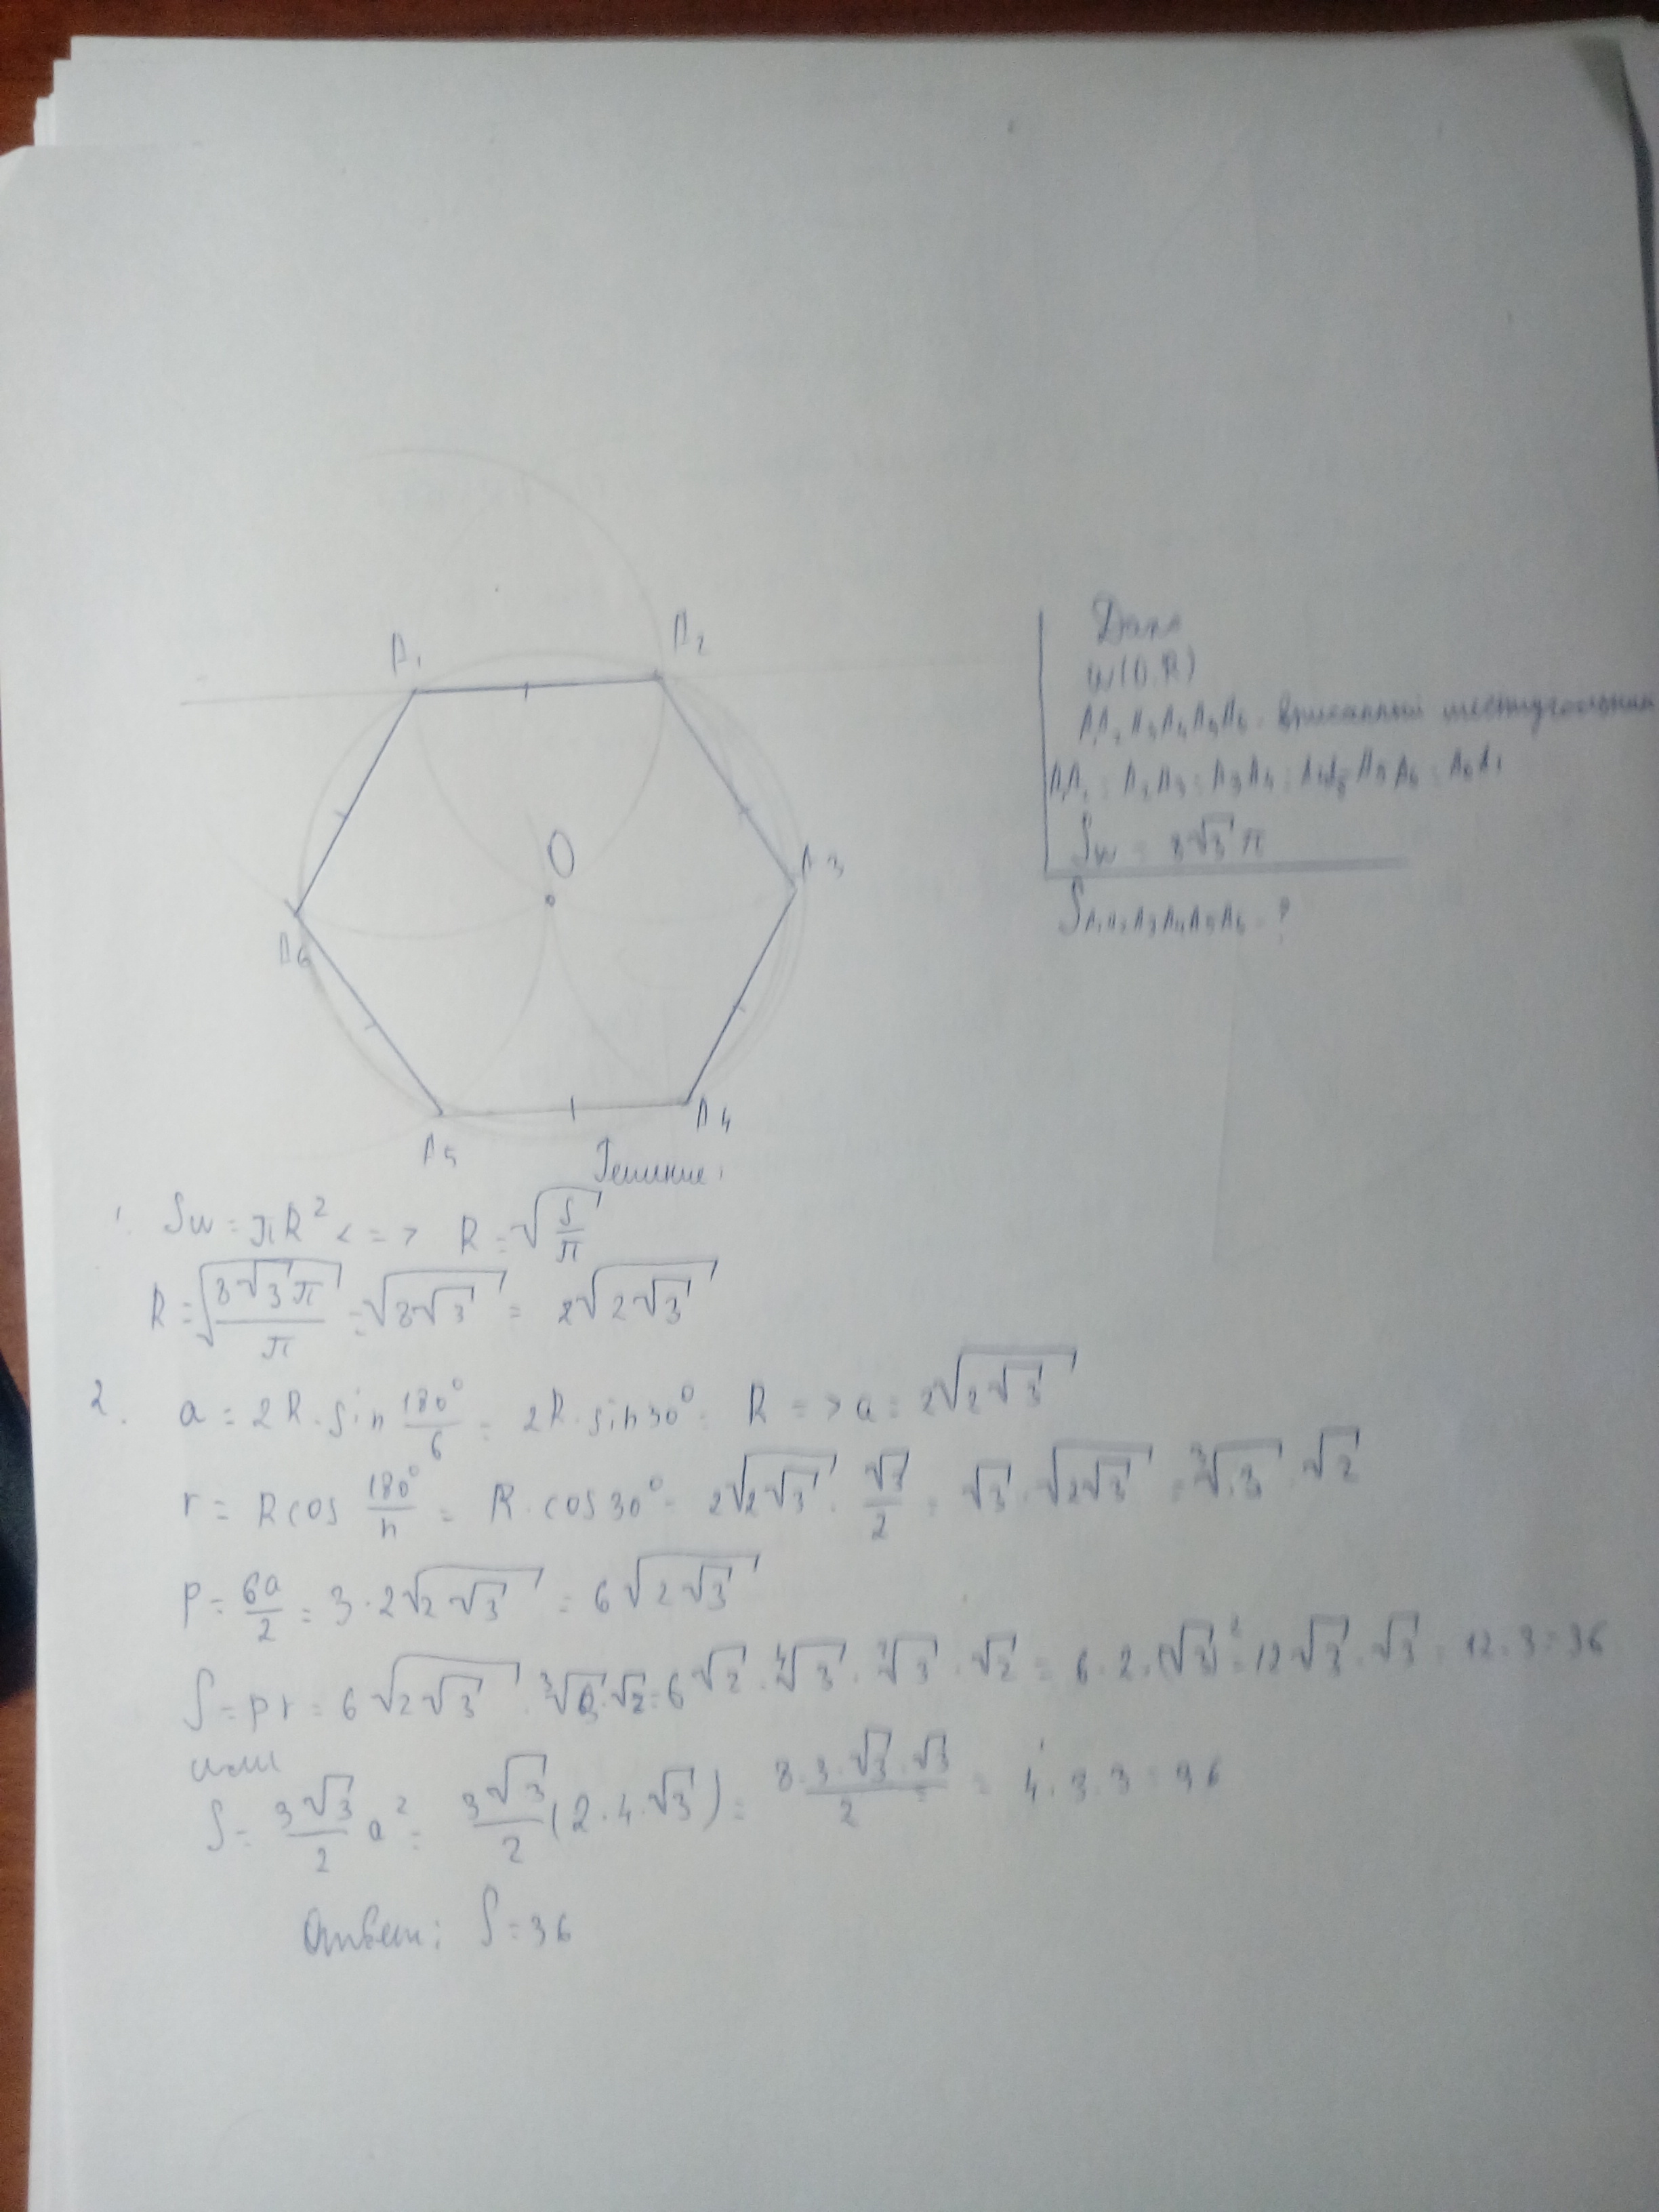 A₁
A₂
O
A₃
A₆
A₅
A₄
Дано
w(O.R)
A₁A₂A₃A₄A₅A₆ - вписанный шестиугольник
A₁A₂ = A₂A₃ = A₃A₄ = A₄A₅ = A₅A₆ = A₆A₁
Sw = 8√3 π
SA₁A₂A₃A₄A₅A₆ - ?
Решение:
1. Sw = πR² <=> R = √(S/π)
R = √(8√3π/π) = √(8√3) = 2√(2√3)
2. a = 2R · sin 180°/6 = 2R · sin30° = R => a = 2√(2√3)
r = R cos 180°/n = R · cos30° = 2√(2√3) · √3/2 = √3 · √(2√3) = · √2
p = 6a/2 = 3 · 2√(2√3) = 6√(2√3)
S = pr = 6√(2√3) · √2 = 6√2 · · √2 = 6 · 2 · (√3)² = 12√3 · √3 = 12 · 3 = 36
или
S = 3√3/2 a² = 3√3/2 (2 · 4 · √3) = 8 · 3 · √3 · √3/2 = 4 · 3 · 3 = 36
Ответ: S = 36